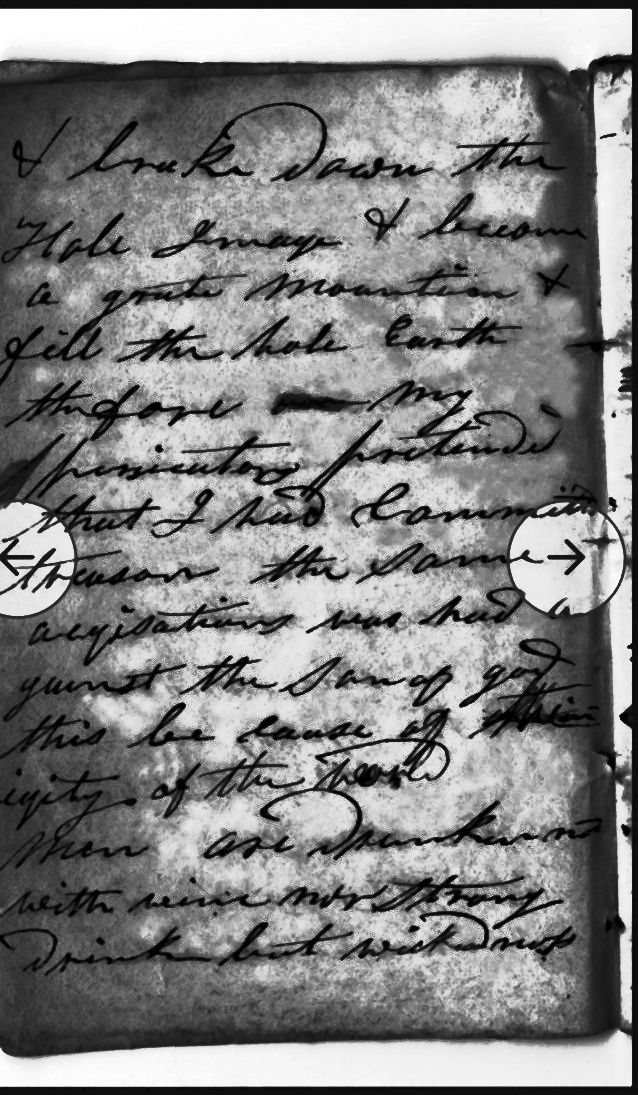 & brake down the
Hole Image & become
a grate Mountin &
fill the hole Earth
thefore my
persicutors pretende
that I had Committ
threason the same
acqisations was had a
gainst the Son of god
this be cause of
iqity of the world
Men are Drunken not
with wine nor Strong
Drink but wickedness